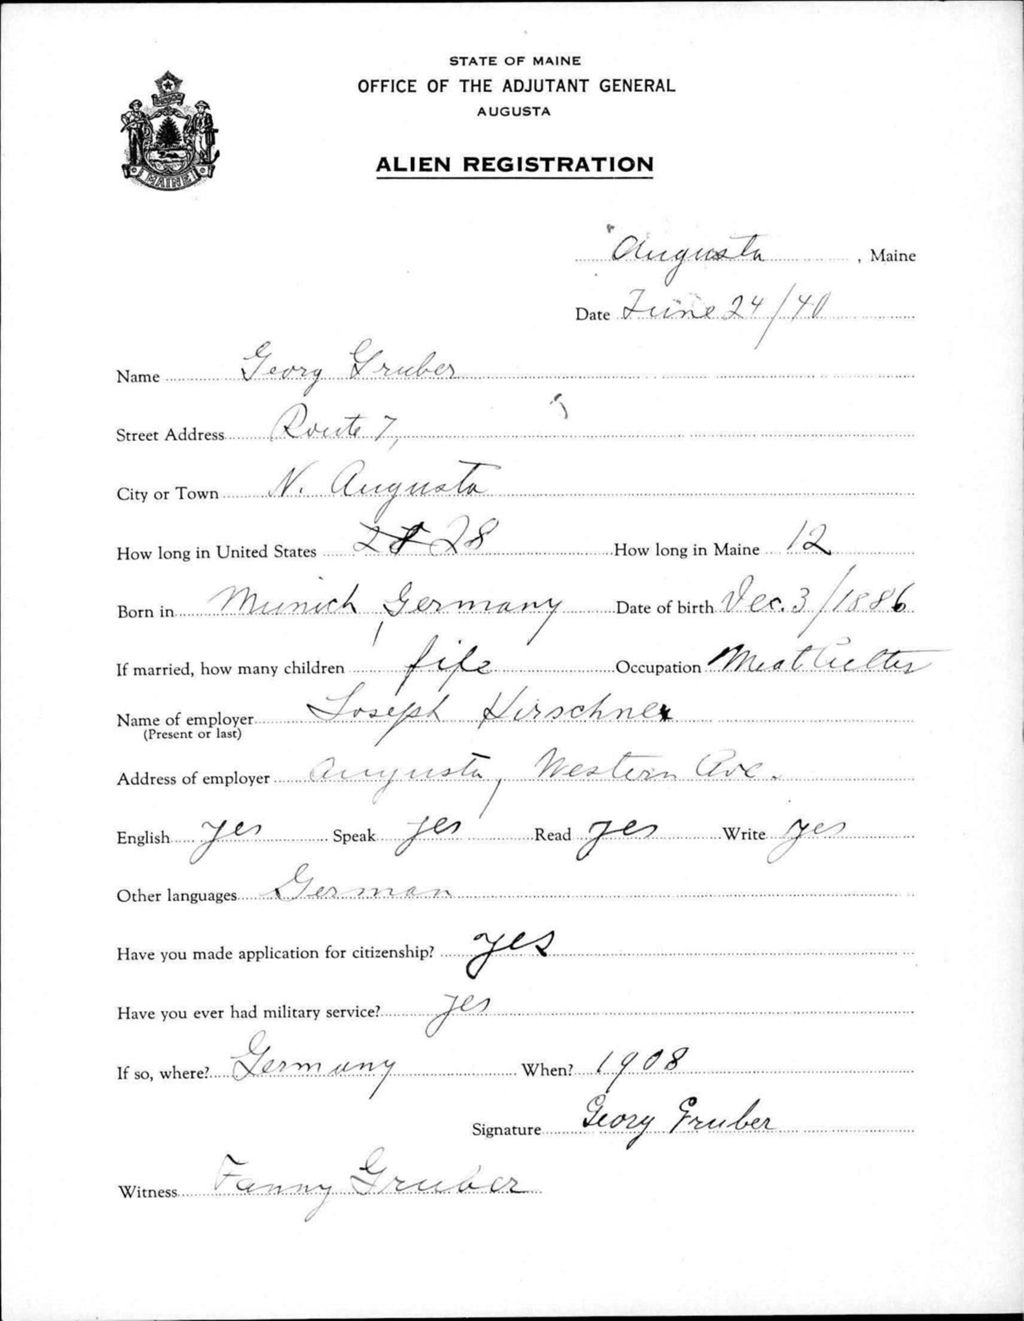 STATE OF MAINE
OFFICE OF THE ADJUTANT GENERAL
AUGUSTA
ALIEN REGISTRATION
MAINE
Augusta, Maine
Date June 24/40
Name Georg Gruber
Street Address Route 7,
City or Town N. Augusta
How long in United States 28 How long in Maine 12
Born in Munich, Germany Date of birth Dec. 3/1886
If married, how many children fife Occupation Meat Cutter
Name of employer Joseph Hirschner
(Present or last)
Address of employer Augusta, Western Ave.
English yes Speak yes Read yes Write yes
Other languages German
Have you made application for citizenship? yes
Have you ever had military service? yes
If so, where? Germany When? 1908
Signature Georg Gruber
Witness Fanny Gruber